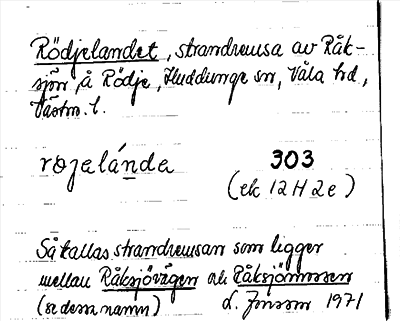 Rödjelandet, strandremsa av Råk-
sjön, å Rödje, Huddunge sn, Våla hd,
Västm. l.
røjelánda 303
(ek 12 H 2 e)
Så kallas strandremsan som ligger
mellan Råksjövägen och Råksjömossen
(se dessa namn) L. Jonsson 1971